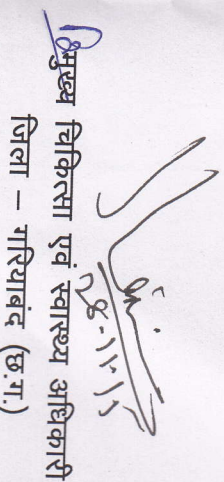 मुख्य चिकित्सा एवं स्वास्थ्य अधिकारी
जिला – गरियाबंद (छ.ग.)